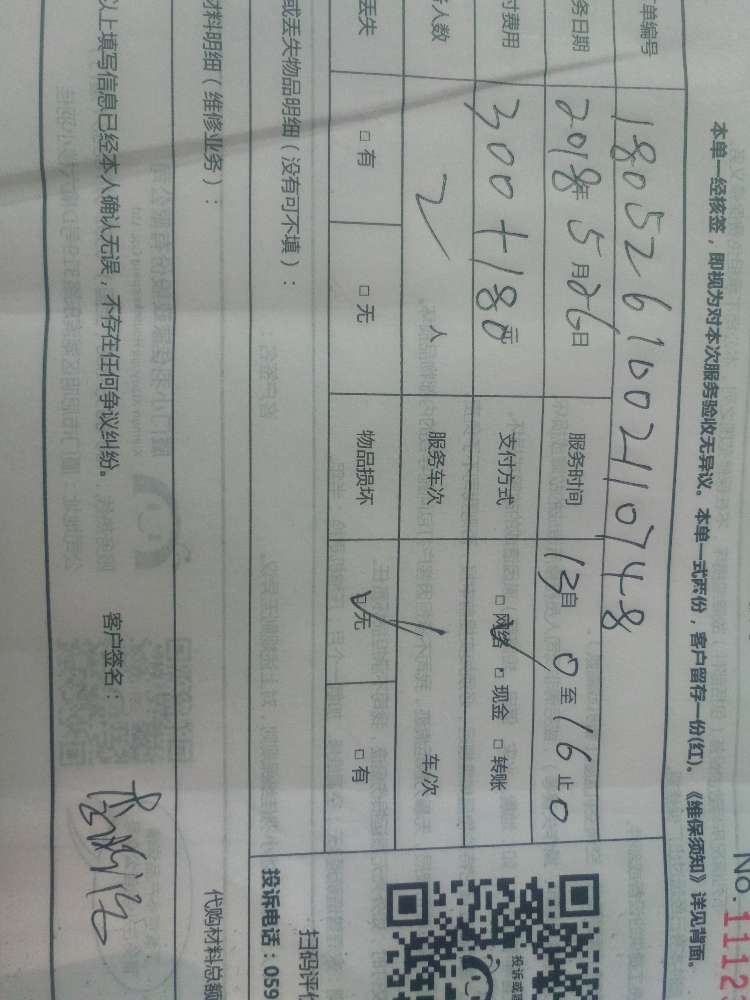 No.1112
本单一经核签，即视为对本次服务验收无异议。本单一式两份，客户留存一份(红)。《维保须知》详见背面。
单编号 1805261002110748
务日期 2018年5月26日 服务时间 13自0至16止0
付费用 300+180元 支付方式 □网络 □现金 □转账
人数 2人 服务车次 车/次
丢失 □有 □无 物品损坏 □无 □有
或丢失物品明细（没有可不填）：
投诉或
扫码评价
投诉电话：059
材料明细（维修业务）：
代购材料总额
以上填写信息已经本人确认无误，不存在任何争议纠纷。 客户签名：